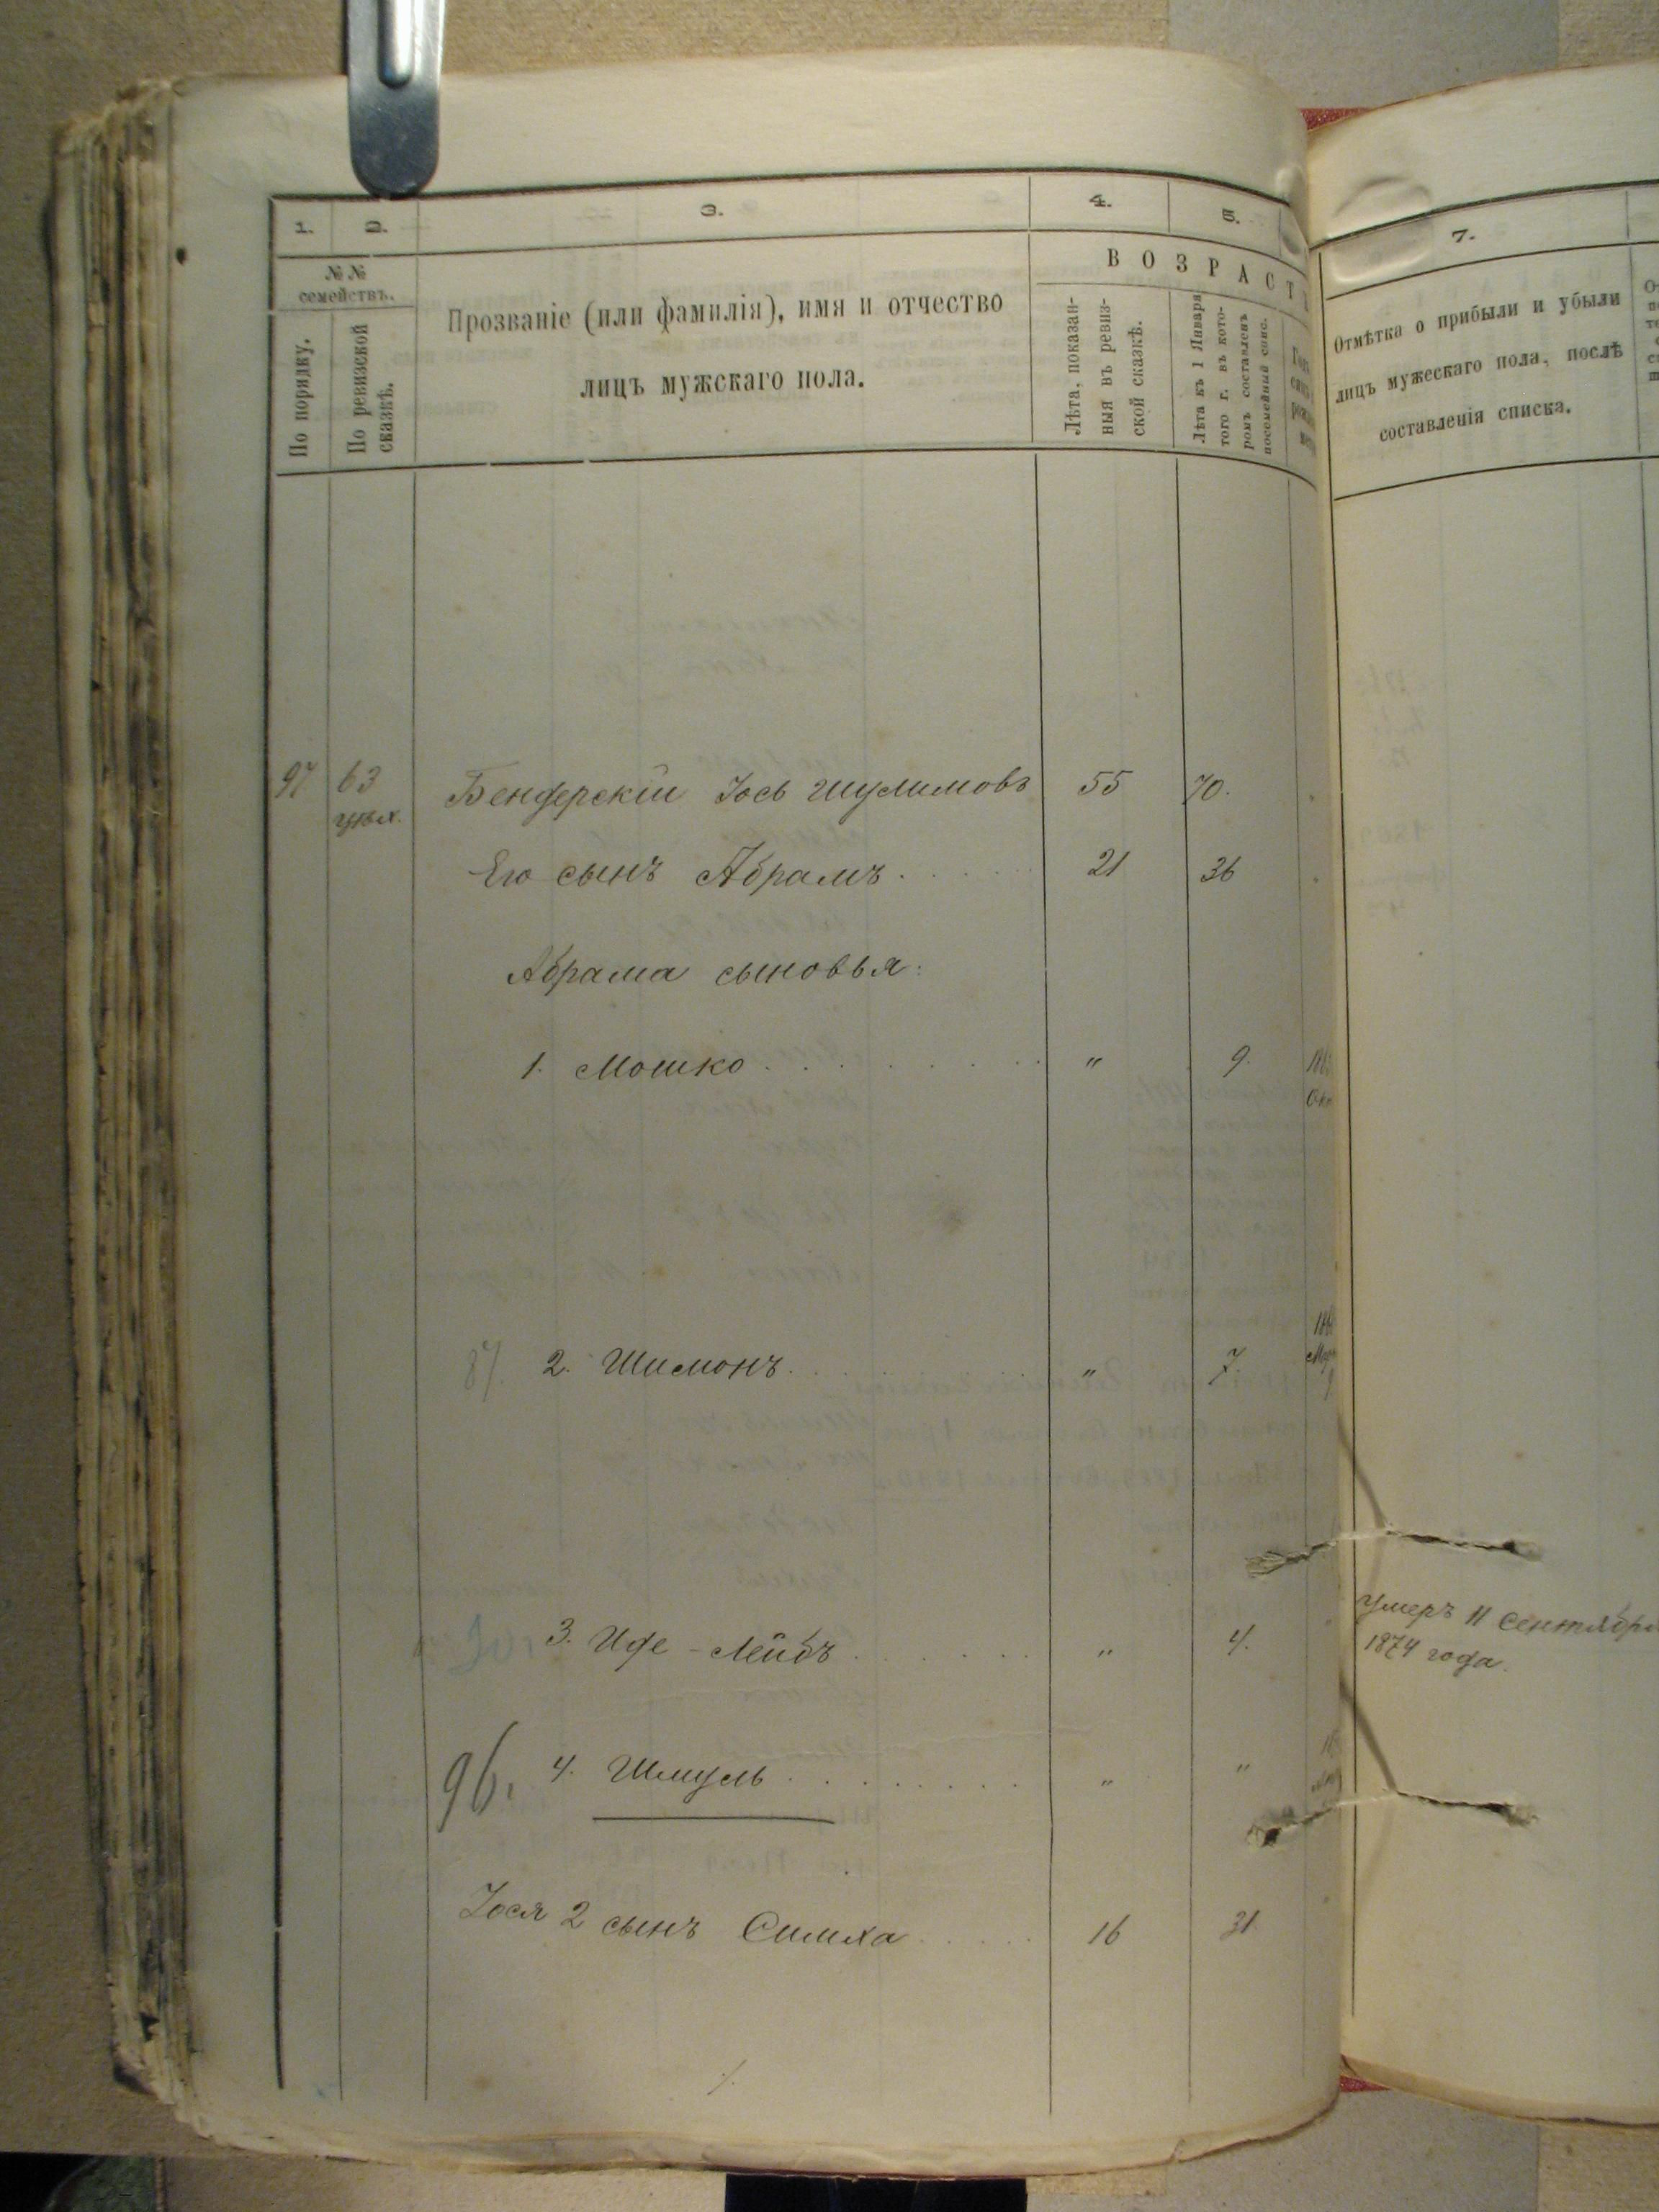 1. 2. 3. 4. 5.
№№ семействъ.
По порядку.
По ревизской сказкѣ.
Прозваніе (или фамилія), имя и отчество
лицъ мужскаго пола.
ВОЗРАСТ
Лѣта, показан-
ныя въ ревиз-
ской сказкѣ.
Лѣта къ 1 Января
того г. въ кото-
ромъ составленъ
посемейный спис.
7.
Отмѣтка о прибыли и убыли
лицъ мужескаго пола, послѣ
составленія списка.
97 63 Бендерскій Іось Шулимовъ 55 70.
Его сынъ Абрамъ 21 36
Абрама сыновья:
1. Мошко " 9.
87 2. Шимонъ " 7.
3. Иде-Лейбъ " 4.
Умеръ 11 Сентября
1874 года.
96. 4. Шмуль " "
Іося 2 сынъ Симха 16 31